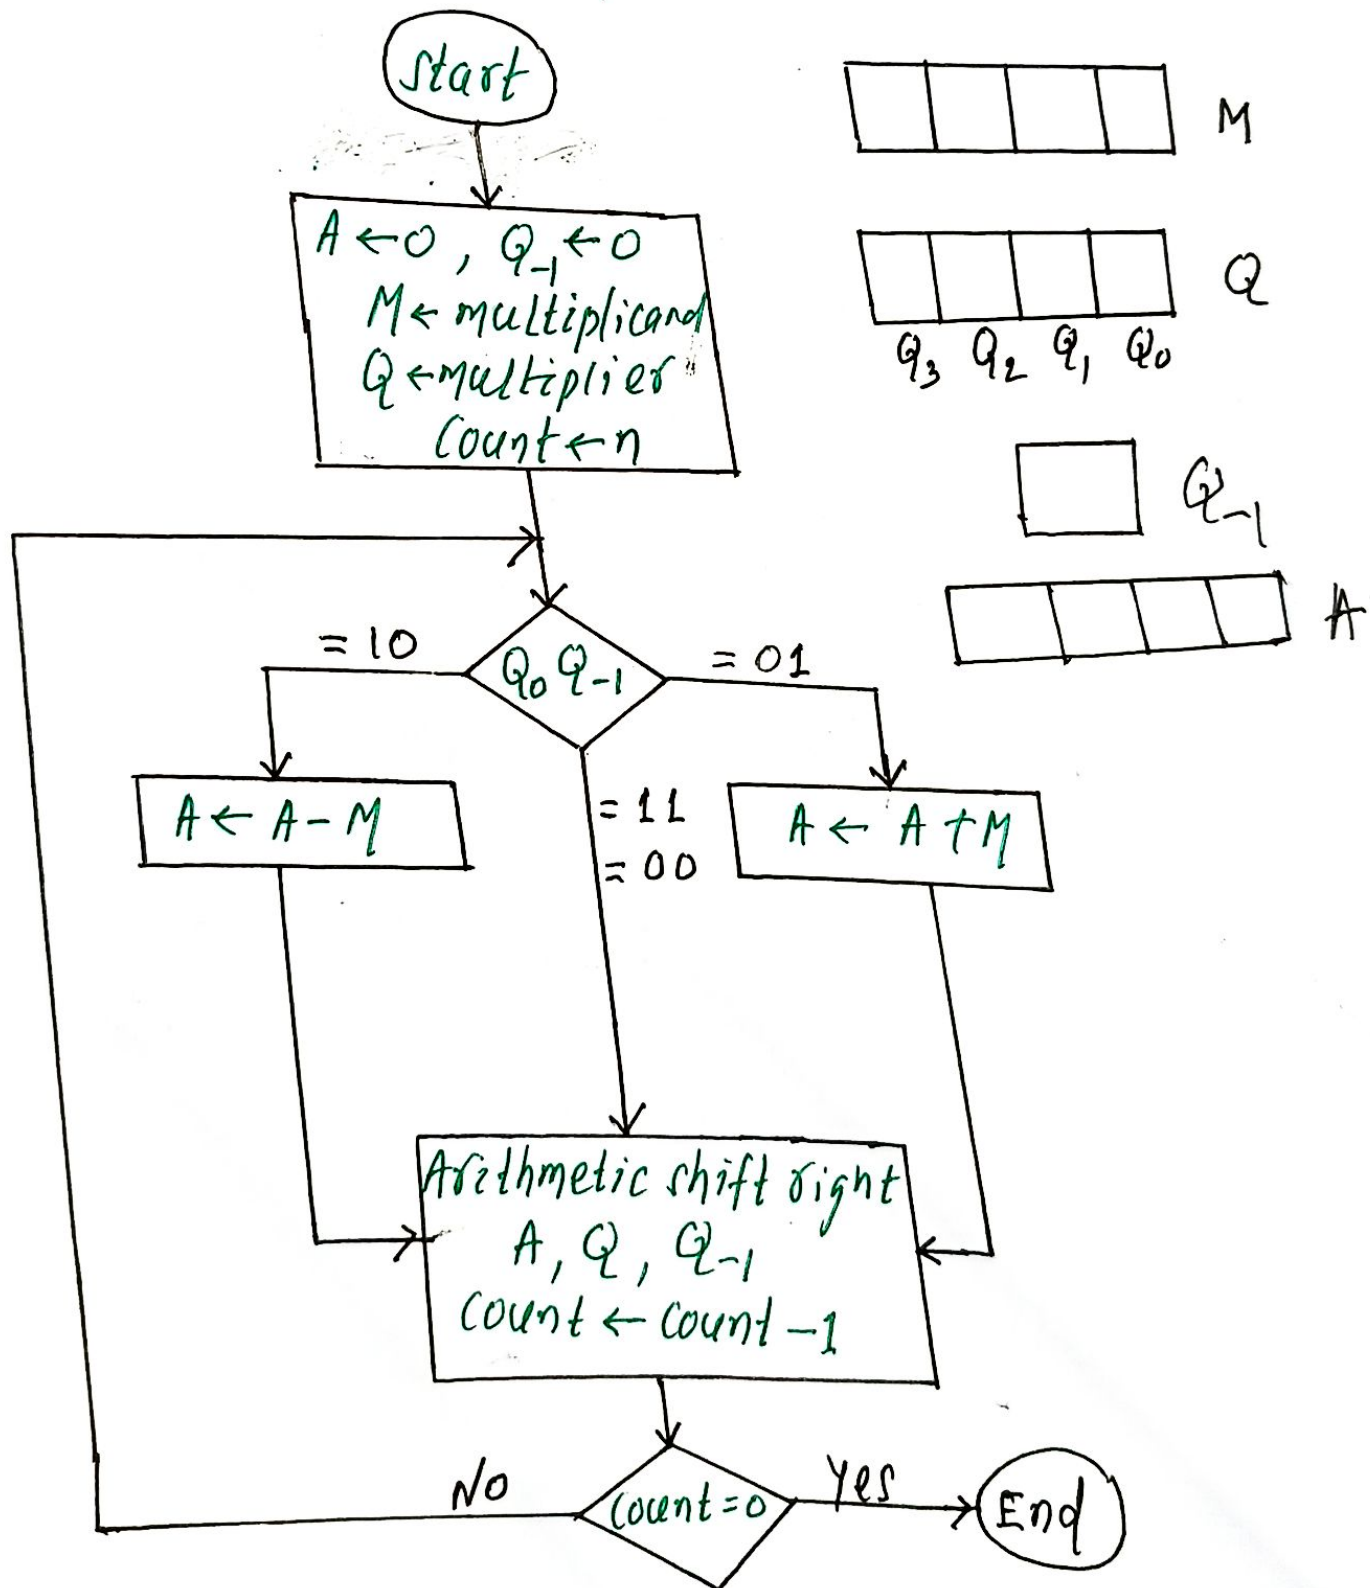 Start
A ← 0 , Q₋₁ ← 0
M ← multiplicand
Q ← multiplier
Count ← n
M
Q
Q₃ Q₂ Q₁ Q₀
Q₋₁
A
= 10
Q₀ Q₋₁
= 01
A ← A - M
= 11
= 00
A ← A + M
Arithmetic shift right
A, Q, Q₋₁
Count ← Count - 1
No
Count = 0
Yes
End